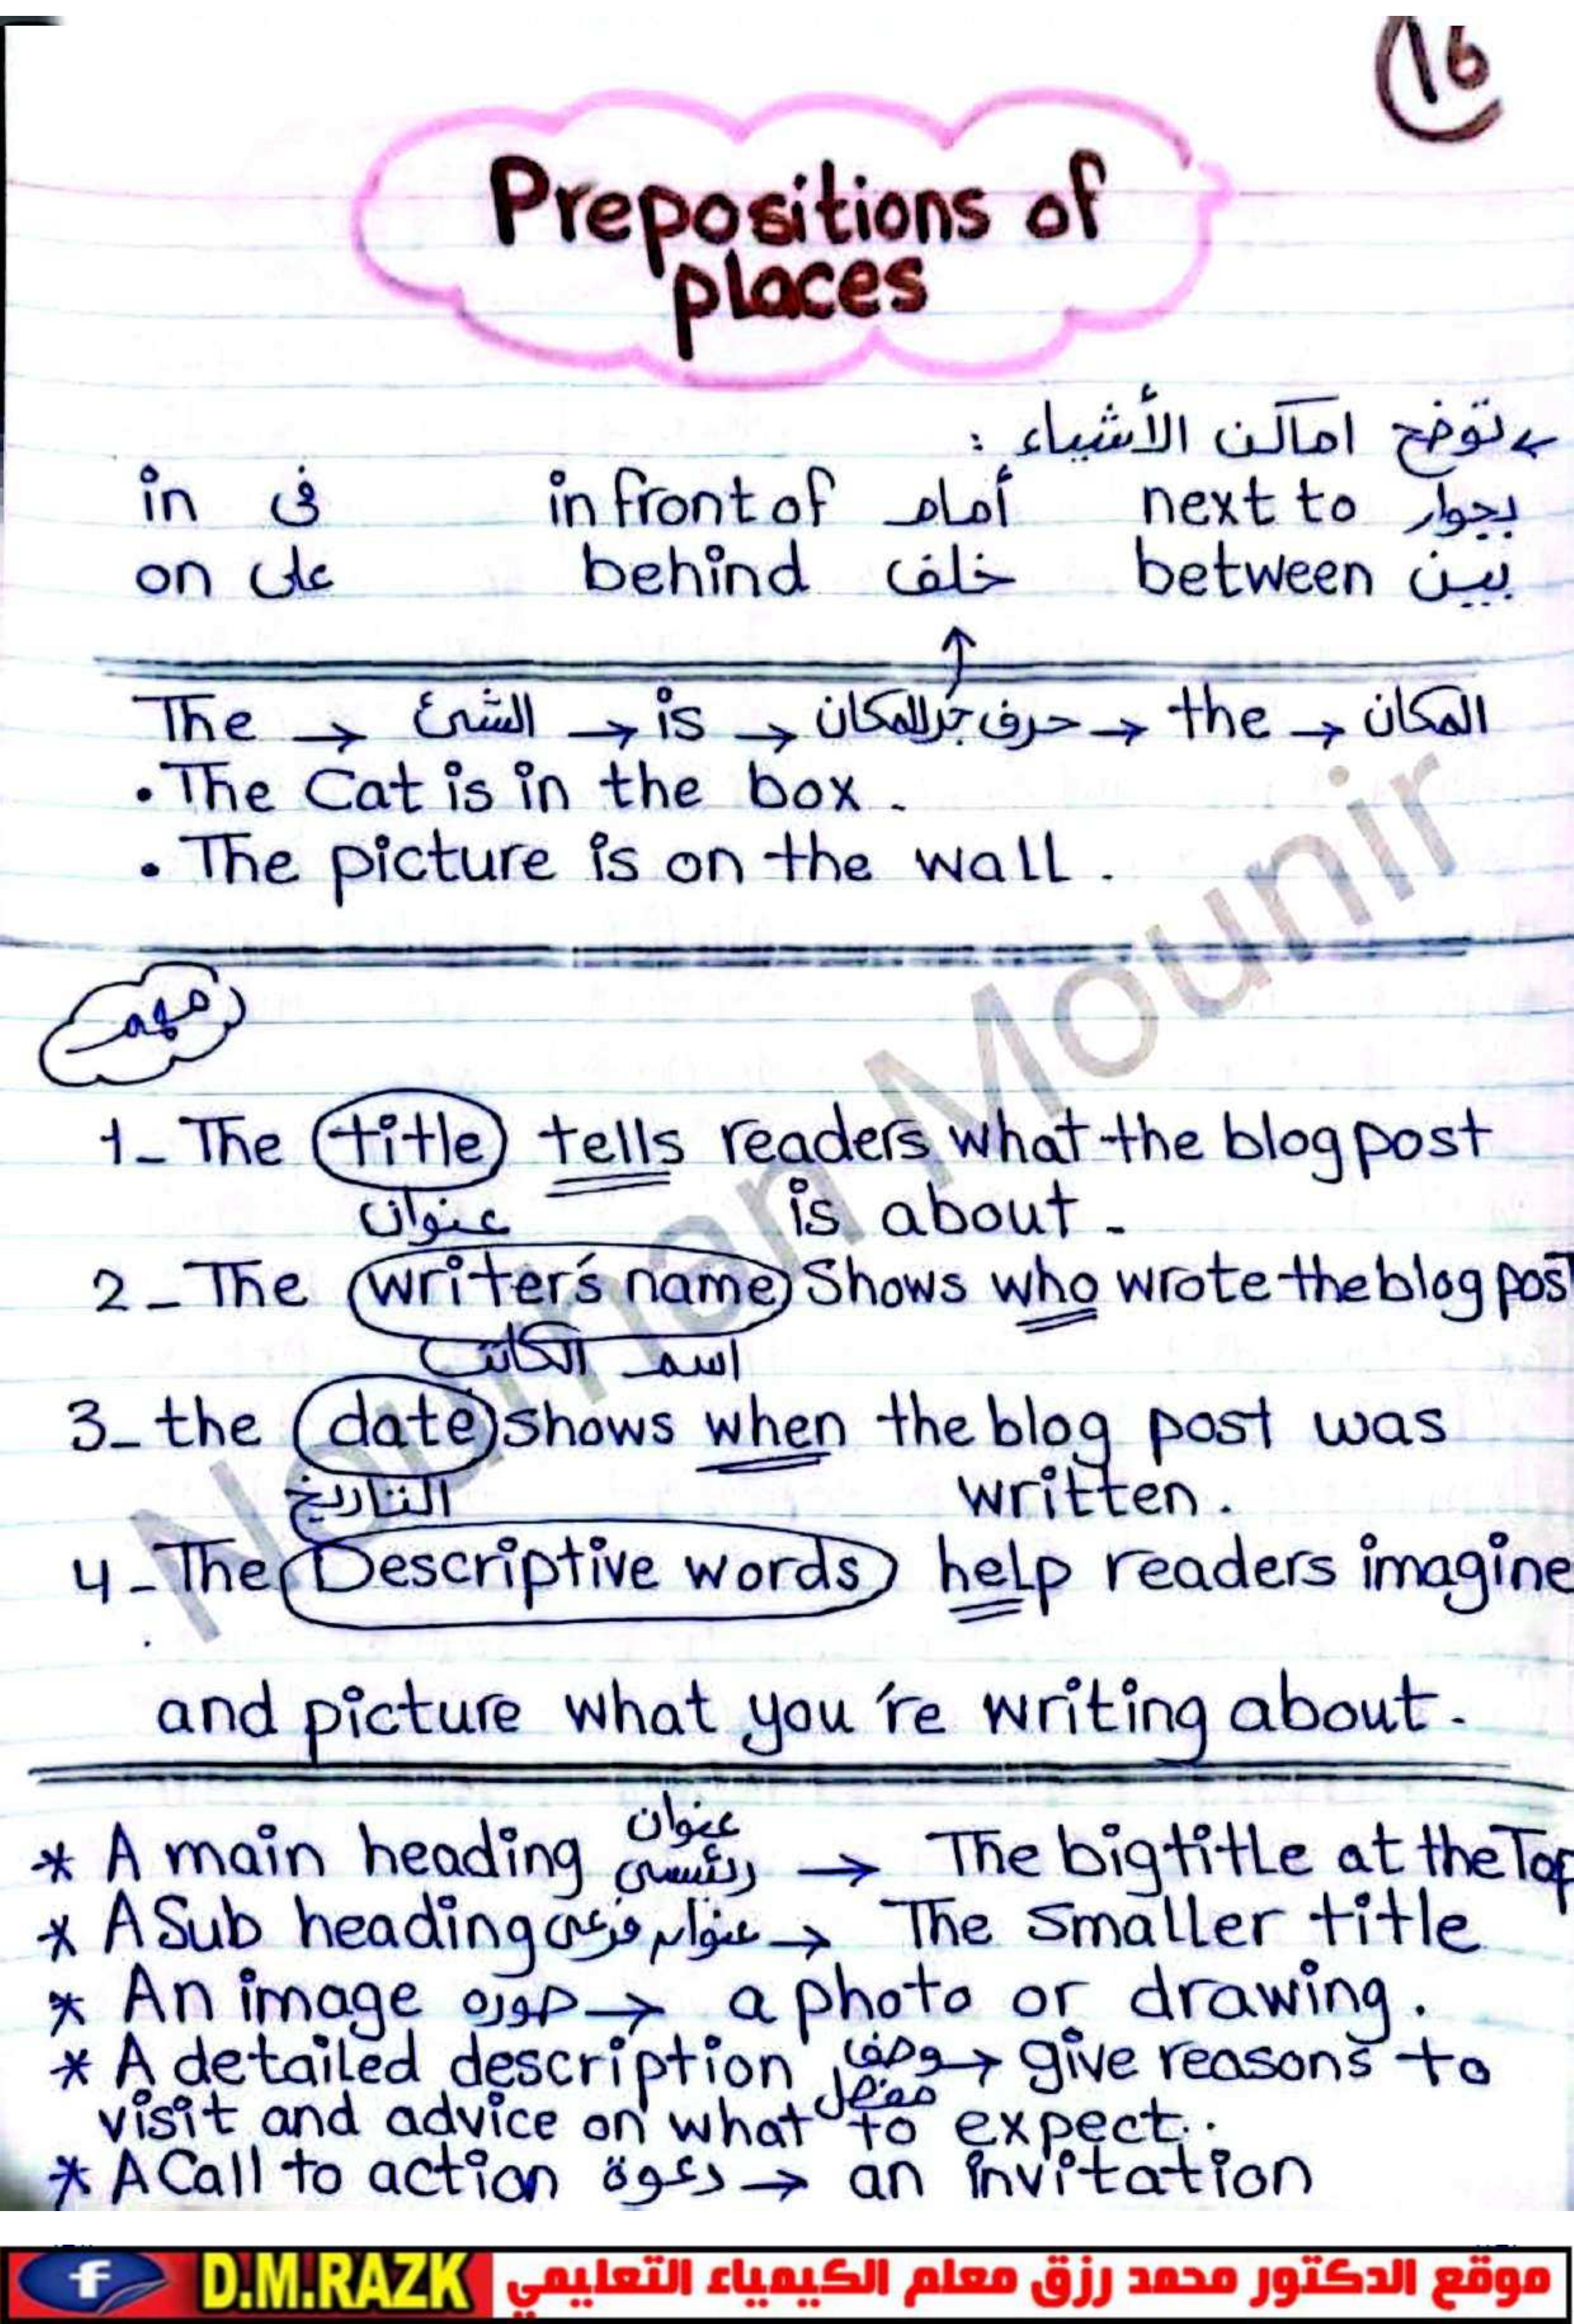 16
Prepositions of
places
توضح اماكن الأشياء :
in فى in front of أمام next to بجوار
on على behind خلف between بين
The → الشئ → is → حرف جر للمكان → the → المكان
• The Cat is in the box.
• The picture is on the wall.
مهم
1- The title tells readers what the blog post
عنوان is about.
2- The writer's name Shows who wrote the blog post
اسم الكاتب
3- the date shows when the blog post was
التاريخ written.
4- The Descriptive words help readers imagine
and picture what you're writing about.
* A main heading عنوان رئيسى → The big title at the Top
* A Sub heading عنوان فرعى → The smaller title
* An image صوره → a photo or drawing.
* A detailed description وصف مفصل → give reasons to
visit and advice on what to expect..
* A Call to action دعوة → an invitation
Nourhan Mounir
f D.M.RAZK موقع الدكتور محمد رزق معلم الكيمياء التعليمي